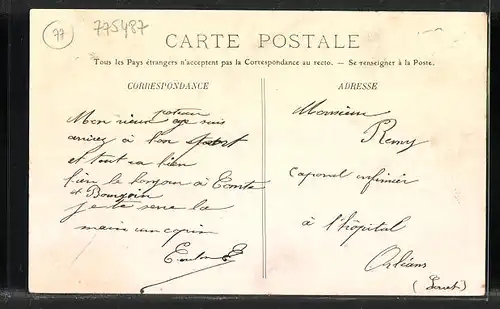 77
775487
CARTE POSTALE
Tous les Pays étrangers n'acceptent pas la Correspondance au recto. — Se renseigner à la Poste.
CORRESPONDANCE
Mon vieux je suis
arrivez à bon
et tout va bien
bien le bonjour à Comte
et Bourgoin
je te serre la
main un copin
ADRESSE
Monsieur
Remy
Caporal infirmier
à l'hôpital
Orléans
(Loiret)